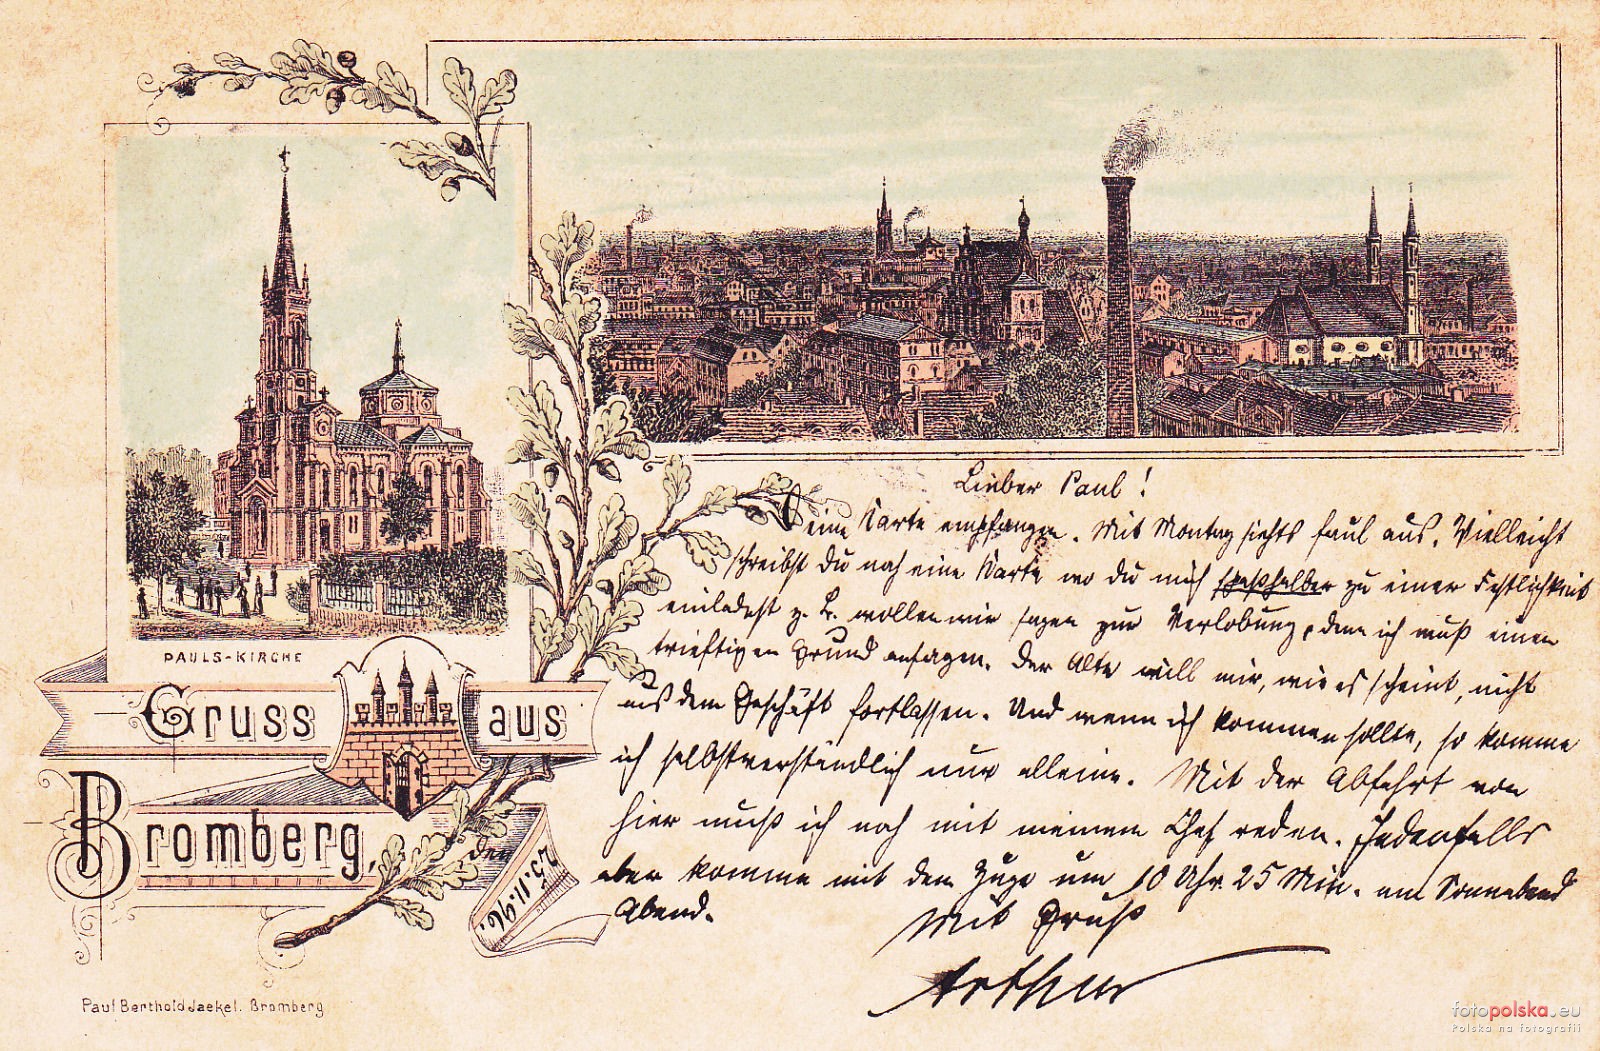 PAULS-KIRCHE
Gruss aus
Bromberg,
den 25.11.96.
Paul Berthold Jaekel. Bromberg
Lieber Paul!
Deine Karte empfangen. Mit Montag siehts faul aus. Vielleicht
schreibst Du noch eine Karte wo du mich zu einer Festlichkeit
einladest z. B. wollen wir sagen zur Verlobung, denn ich muß einen
triftigen Grund ansagen. Der Alte will mir, wie es scheint, nicht
aus dem Geschäft fortlassen. Und wenn ich kommen sollte, so komme
ich selbstverständlich nur alleine. Mit der Abfahrt von
hier muß ich noch mit meinem Chef reden. Jedenfalls
aber komme mit dem Zuge um 10 Uhr 25 Min. am Sonnabend
Abend.
Mit Gruß
Arthur
fotopolska.eu
Polska na fotografii